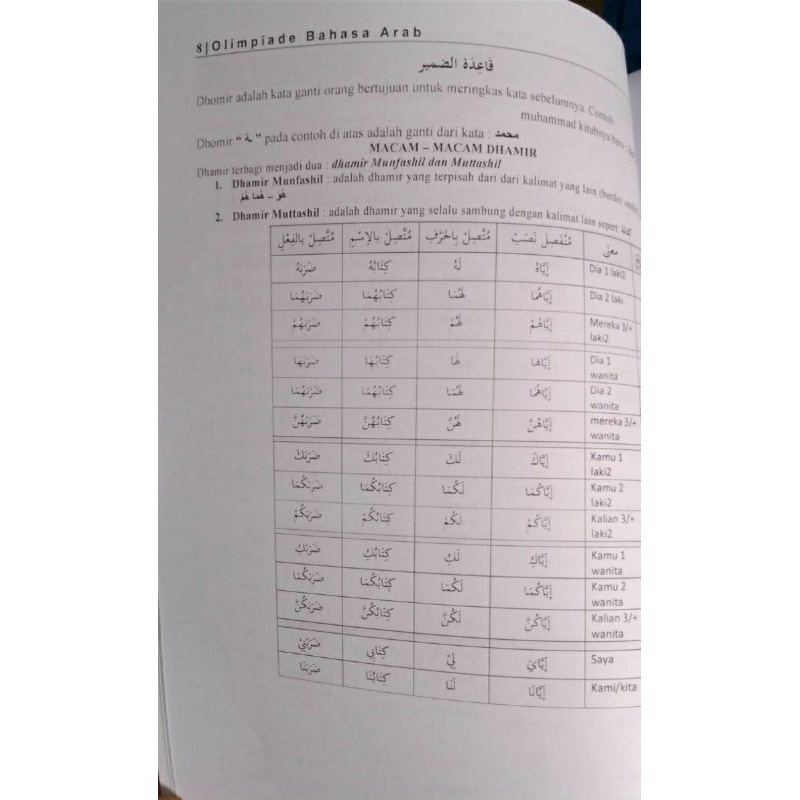 8|Olimpiade Bahasa Arab
قَاعِدَة الضمير
Dhomir adalah kata ganti orang bertujuan untuk meringkas kata sebelumnya. Contoh
muhammad kitabnya
Dhomir “ ـهُ ” pada contoh di atas adalah ganti dari kata : محمد
MACAM – MACAM DHAMIR
Dhamir terbagi menjadi dua : dhamir Munfashil dan Muttashil
1. Dhamir Munfashil : adalah dhamir yang terpisah dari dari kalimat yang lain (berdiri
هُوَ – هُمَا هُمْ
2. Dhamir Muttashil : adalah dhamir yang selalu sambung dengan kalimat lain sepert
مُتَّصِلْ بِالفِعْلِ مُتَّصِلْ بِالاِسْمِ مُتَّصِلْ بِالحَرْفِ مُنْفَصِلْ نَصَبْ معنَى
ضَرَبَهُ كِتَابُهُ لَهُ إِيَّاهُ Dia 1 laki2
ضَرَبَهُمَا كِتَابُهُمَا لَهُمَا إِيَّاهُمَا Dia 2 laki
ضَرَبَهُمْ كِتَابُهُمْ لَهُمْ إِيَّاهُمْ Mereka 3/+
laki2
ضَرَبَهَا كِتَابُهَا لَهَا إِيَّاهَا Dia 1
wanita
ضَرَبَهُمَا كِتَابُهُمَا لَهُمَا إِيَّاهُمَا Dia 2
wanita
ضَرَبَهُنَّ كِتَابُهُنَّ لَهُنَّ إِيَّاهُنَّ mereka 3/+
wanita
ضَرَبَكَ كِتَابُكَ لَكَ إِيَّاكَ Kamu 1
laki2
ضَرَبَكُمَا كِتَابُكُمَا لَكُمَا إِيَّاكُمَا Kamu 2
laki2
ضَرَبَكُمْ كِتَابُكُمْ لَكُمْ إِيَّاكُمْ Kalian 3/+
laki2
ضَرَبَكِ كِتَابُكِ لَكِ إِيَّاكِ Kamu 1
wanita
ضَرَبَكُمَا كِتَابُكُمَا لَكُمَا إِيَّاكُمَا Kamu 2
wanita
ضَرَبَكُنَّ كِتَابُكُنَّ لَكُنَّ إِيَّاكُنَّ Kalian 3/+
wanita
ضَرَبَنِيْ كِتَابِي لِيْ إِيَّايَ Saya
ضَرَبَنَا كِتَابُنَا لَنَا إِيَّانَا Kami/kita